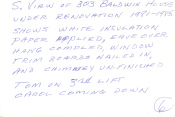 S. VIEW OF 303 BALDWIN HOUSE
UNDER RENOVATION 1981-1985
SHOWS WHITE INSULATION
PAPER APPLIED, EAVE OVER
HANG COMPLETED, WINDOW
TRIM BOARDS NAILED IN,
AND CHIMNEY UNFINISHED
TOM ON 3RD LIFT
CAROL COMING DOWN
6